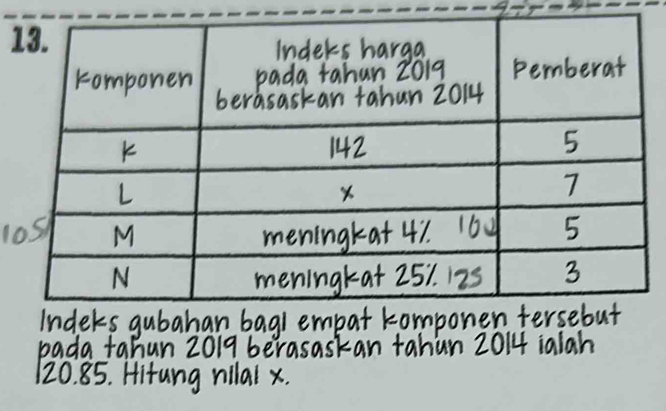 13.
Komponen
Indeks harga
pada tahun 2019
berasaskan tahun 2014
Pemberat
K 142 5
L x 7
105 M meningkat 4% 5
N meningkat 25% 125 3
Indeks gubahan bagi empat komponen tersebut
pada tahun 2019 berasaskan tahun 2014 ialah
120.85. Hitung nilai x.